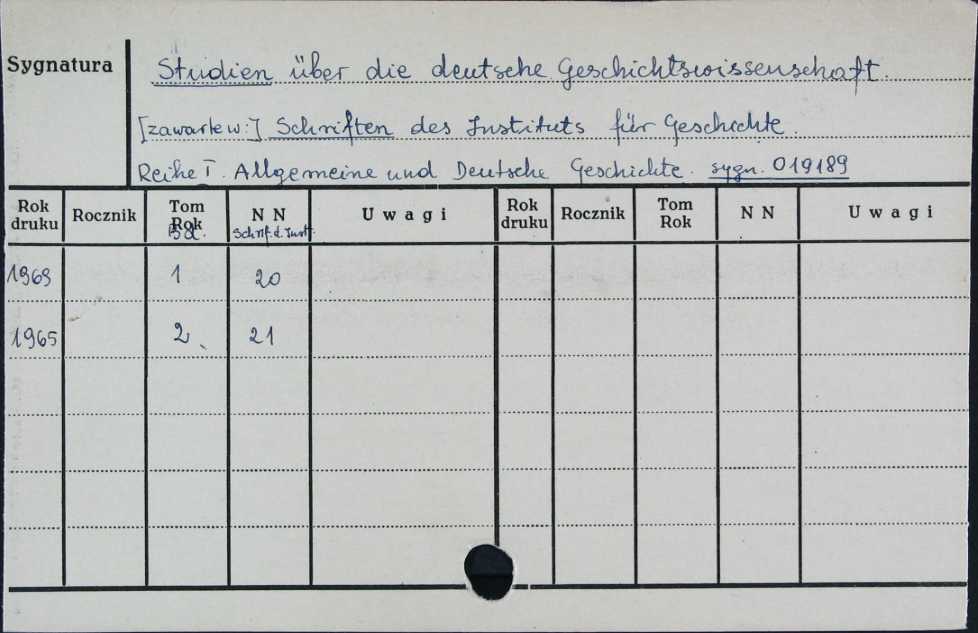 Sygnatura
Studien über die deutsche Geschichtswissenschaft.
[zawarte w:] Schriften des Instituts für Geschichte.
Reihe I. Allgemeine und Deutsche Geschichte. sygn. 019189
Rok druku Rocznik Tom Rok N N Uwagi Rok druku Rocznik Tom Rok N N Uwagi
Bd. Schrif. d. Inst.
1969 1 20
1965 2 21